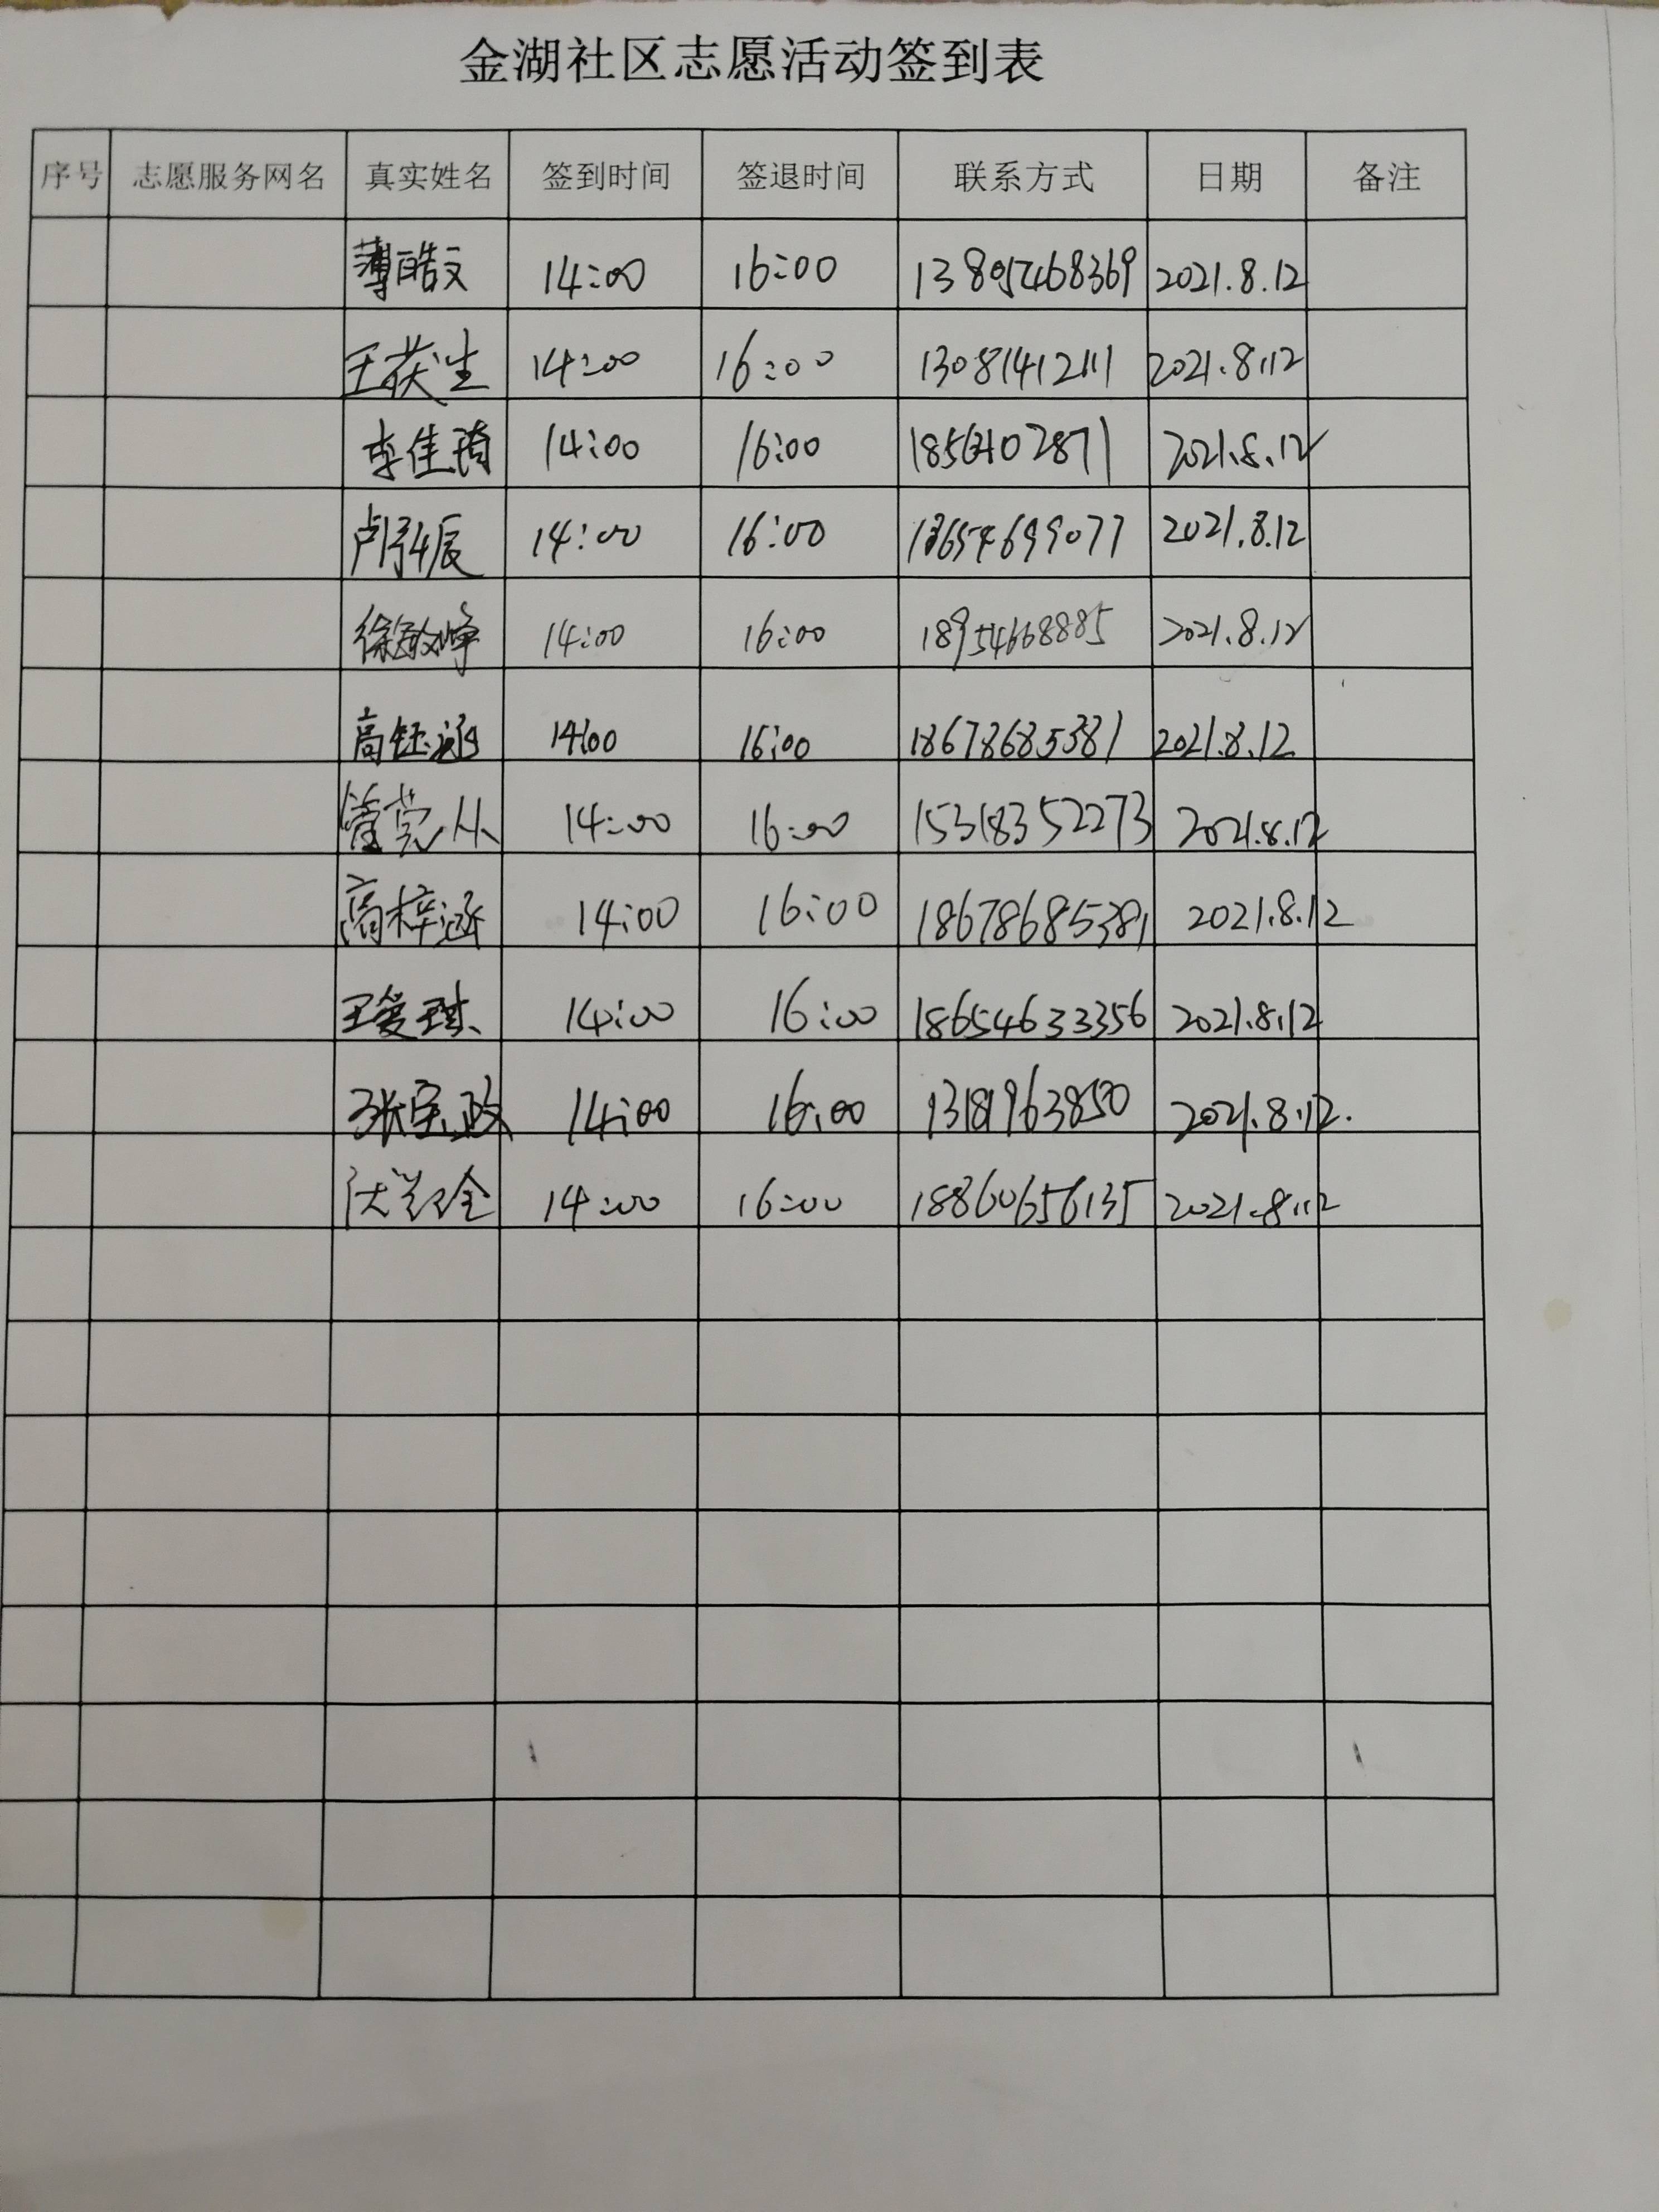 金湖社区志愿活动签到表
序号 志愿服务网名 真实姓名 签到时间 签退时间 联系方式 日期 备注
薄皓文 14:00 16:00 2021.8.12
王荻生 14:00 16:00 13081412111 2021.8.12
李佳琦 14:00 16:00 2021.8.12
卢泓辰 14:00 16:00 2021.8.12
徐敬峥 14:00 16:00 18954668885 2021.8.12
高钰涵 14:00 16:00 18678685381 2021.8.12
14:00 16:00 15318352273 2021.8.12
高梓涵 14:00 16:00 18678685381 2021.8.12
王爱琪 14:00 16:00 18654633356 2021.8.12
张宝政 14:00 16:00 2021.8.12.
14:00 16:00 18860656135 2021.8.12